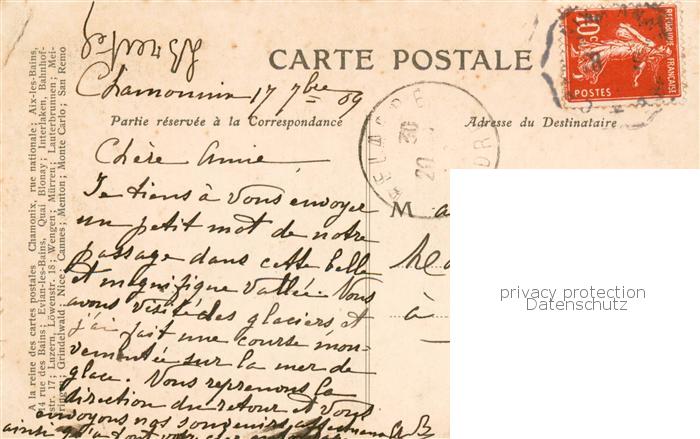 CARTE POSTALE
10c
POSTES
REPUBLIQUE FRANÇAISE
Chamounix 17 7bre 09
Partie réservée à la Correspondance
Adresse du Destinataire
Chère Amie
Je tiens à vous envoyer
un petit mot de notre
passage dans cette belle
et magnifique vallée. Nous
avons visité des glaciers, et
j'ai fait une course mou-
vementée sur la mer de
glace. Nous reprenons la
direction du retour et vous
envoyons nos souvenirs affectueux
ainsi qu'à tout votre
M
à
A la reine des cartes postales Chamonix, rue nationale; Aix-les-Bains,
rue des Bains; Evian-les-Bains, Quai Blonay; Interlaken, Bahnhof-
str. 17; Luzern, Löwenstr. 18; Wengen; Mürren; Lauterbrunnen; Mei-
ringen; Grindelwald; Nice; Cannes; Menton; Monte Carlo; San Remo
privacy protection
Datenschutz